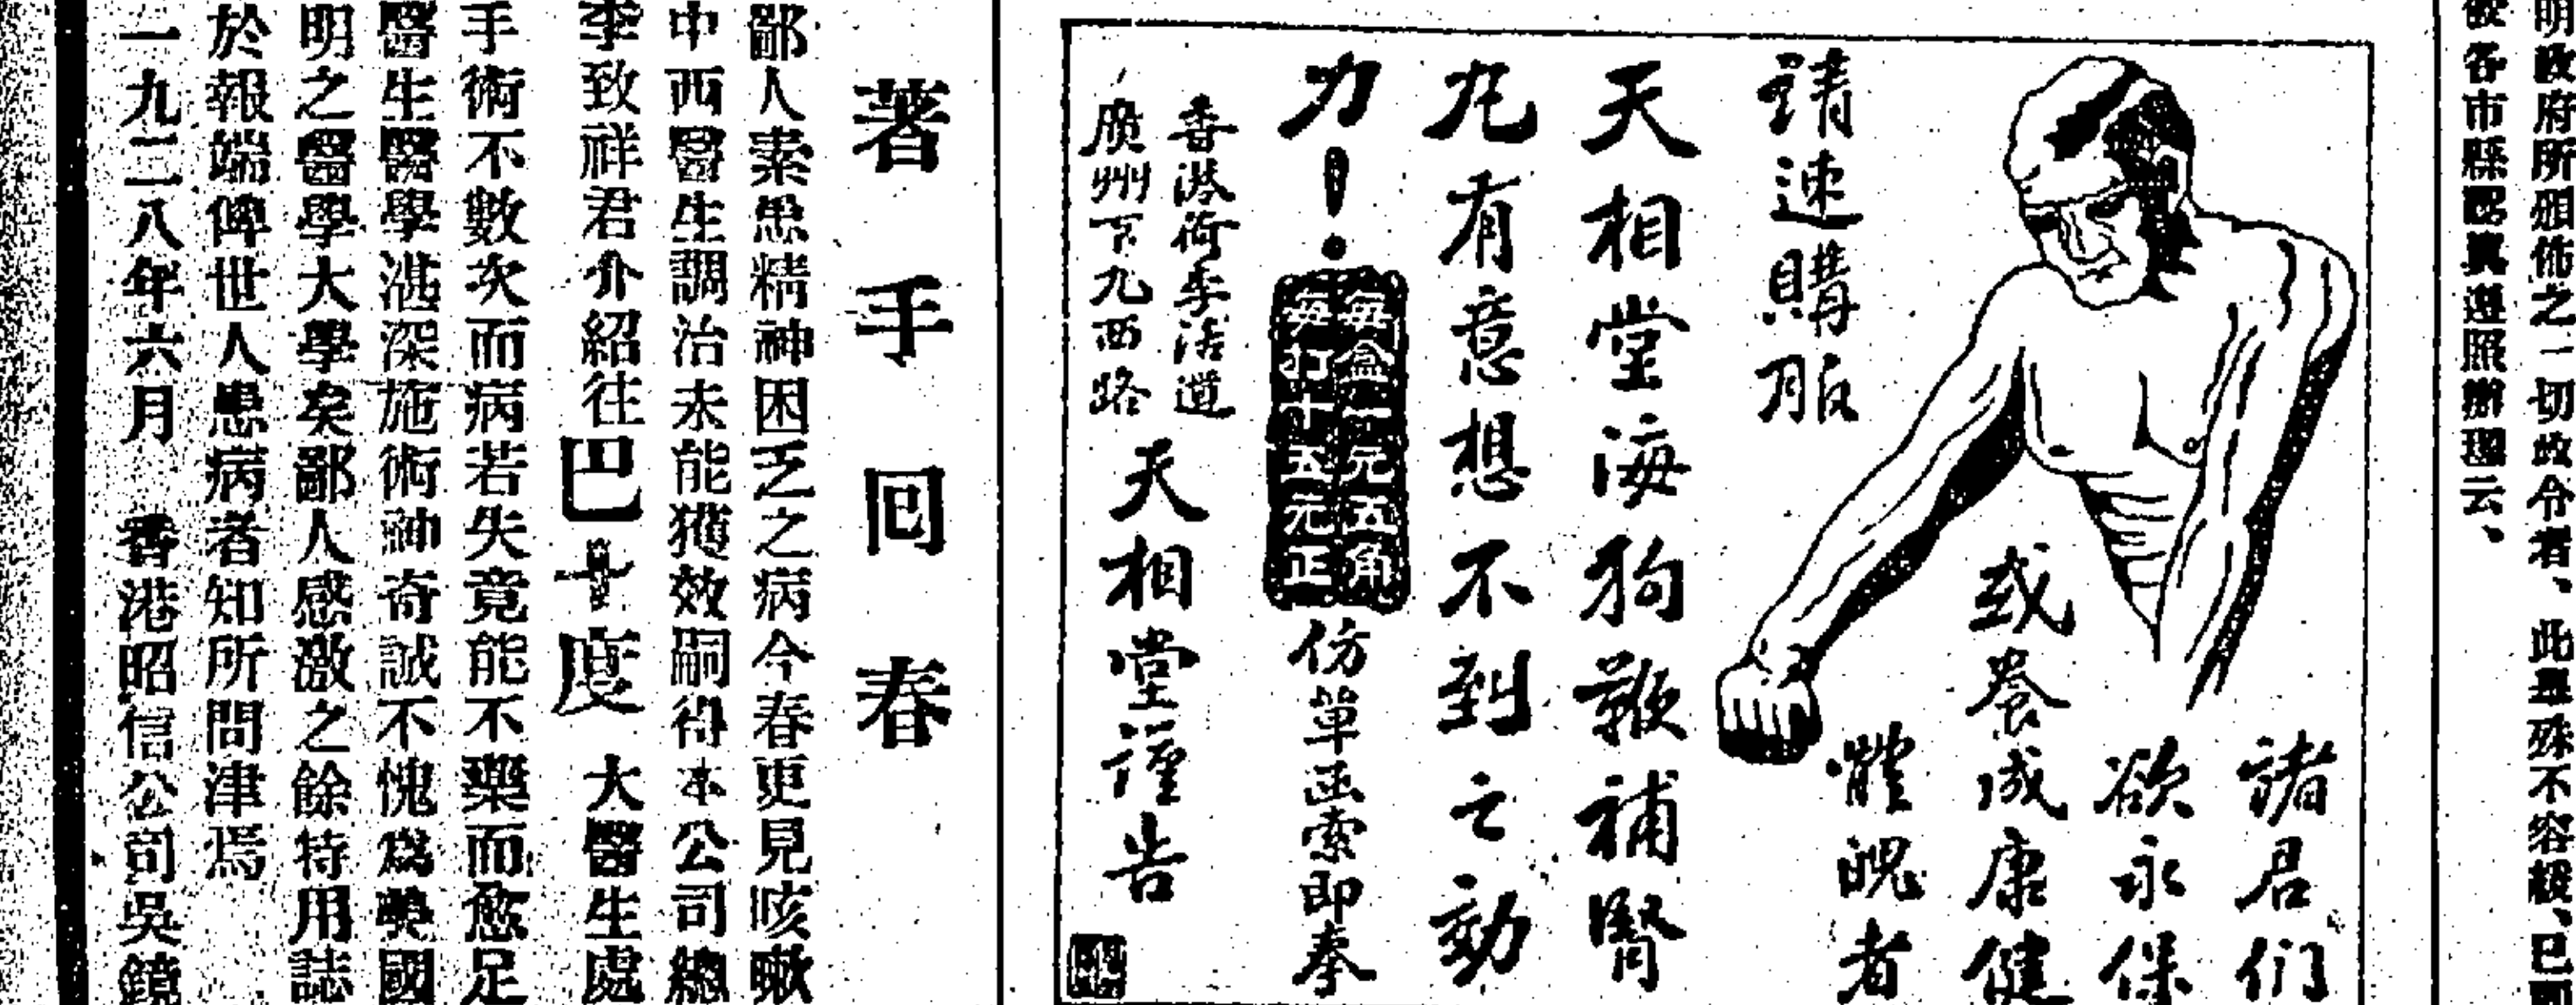 明政府所頒佈之一切政令者、此專殊不容緩、已
各市縣認真遵照辦理云、
諸君们
欲永保
或養成康健
體魄者
請速購服
天相堂海狗鞭補腎
丸有意想不到之効
力！
每盒一元五角
每打十五元正
仿單函索即奉
香港荷李活道
廣州下九西路
天相堂謹告
著手回春
鄙人素患精神困乏之病今春更見咳嗽
中西醫生調治未能獲效嗣得本公司總
李致祥君介紹往巴十度大醫生處
手術不數次而病若失竟能不藥而愈足
醫生醫學湛深施術神奇誠不愧為美國
明之醫學大學矣鄙人感激之餘特用誌
於報端俾世人患病者知所問津焉
一九二八年六月 香港昭信公司吳鏡